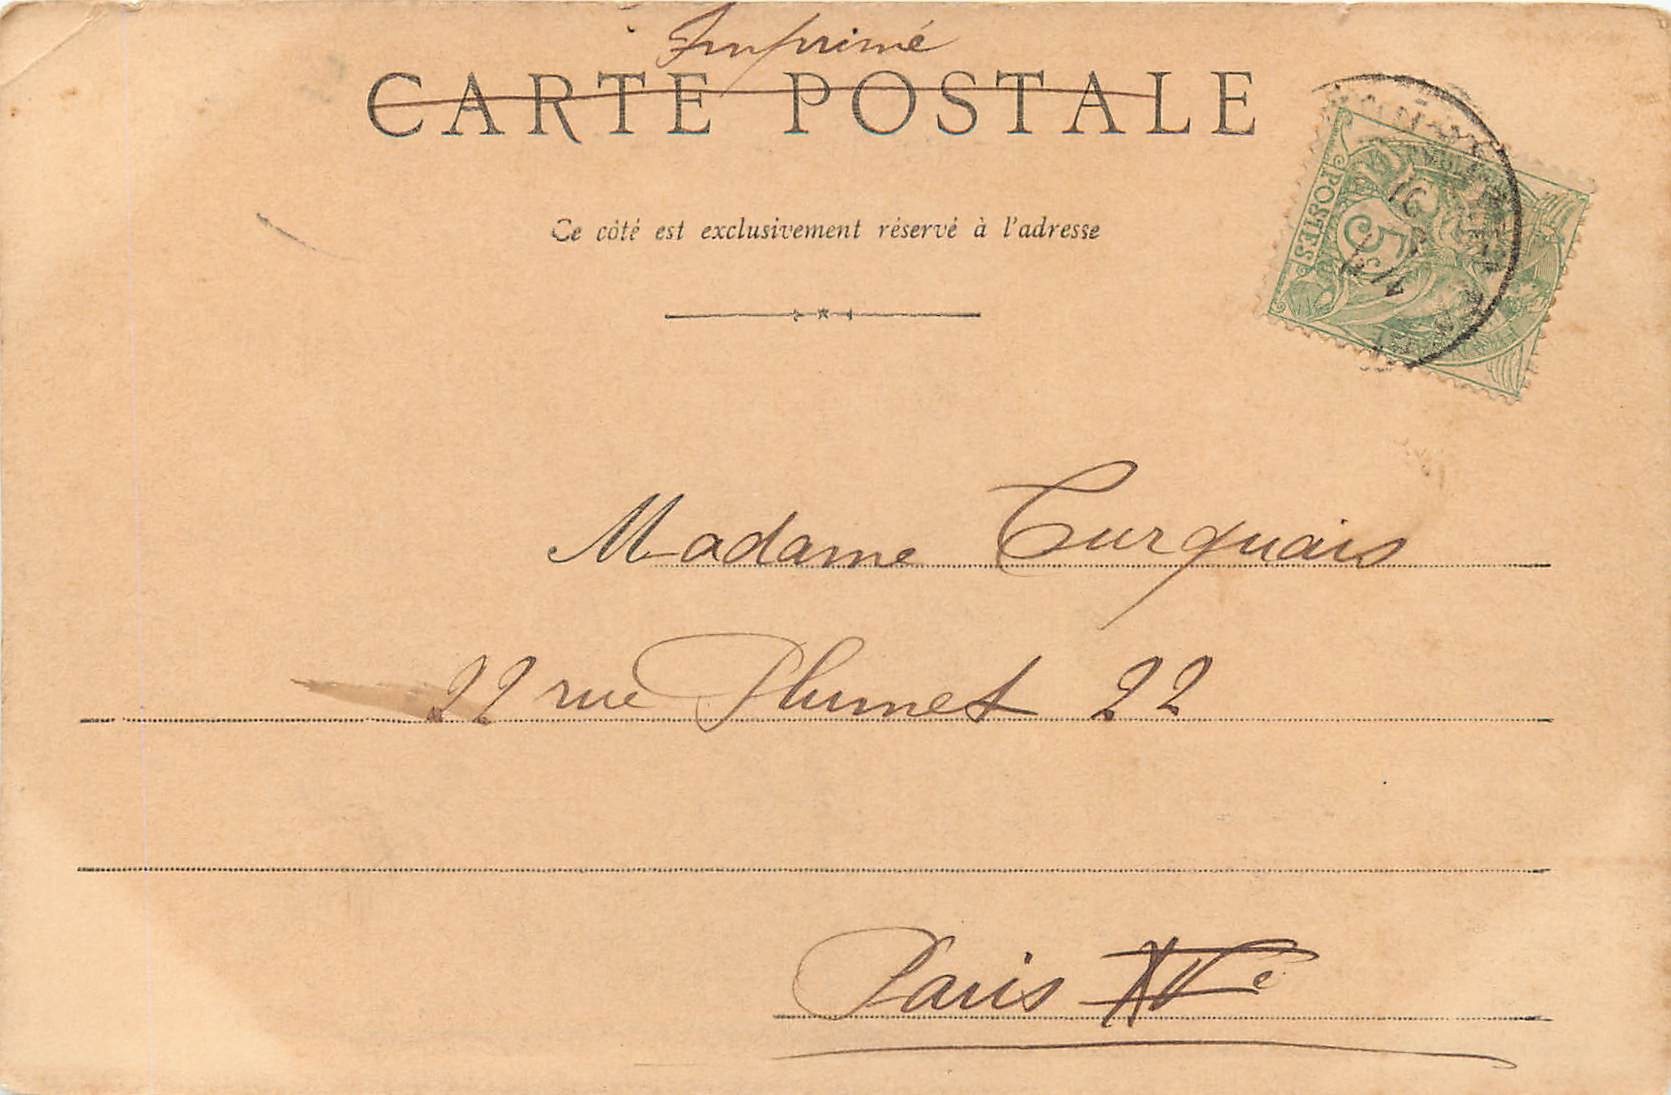 Imprimé
CARTE POSTALE
Ce côté est exclusivement réservé à l'adresse
POSTES
5
Madame Turquais
22 rue Plumet 22
Paris XVe